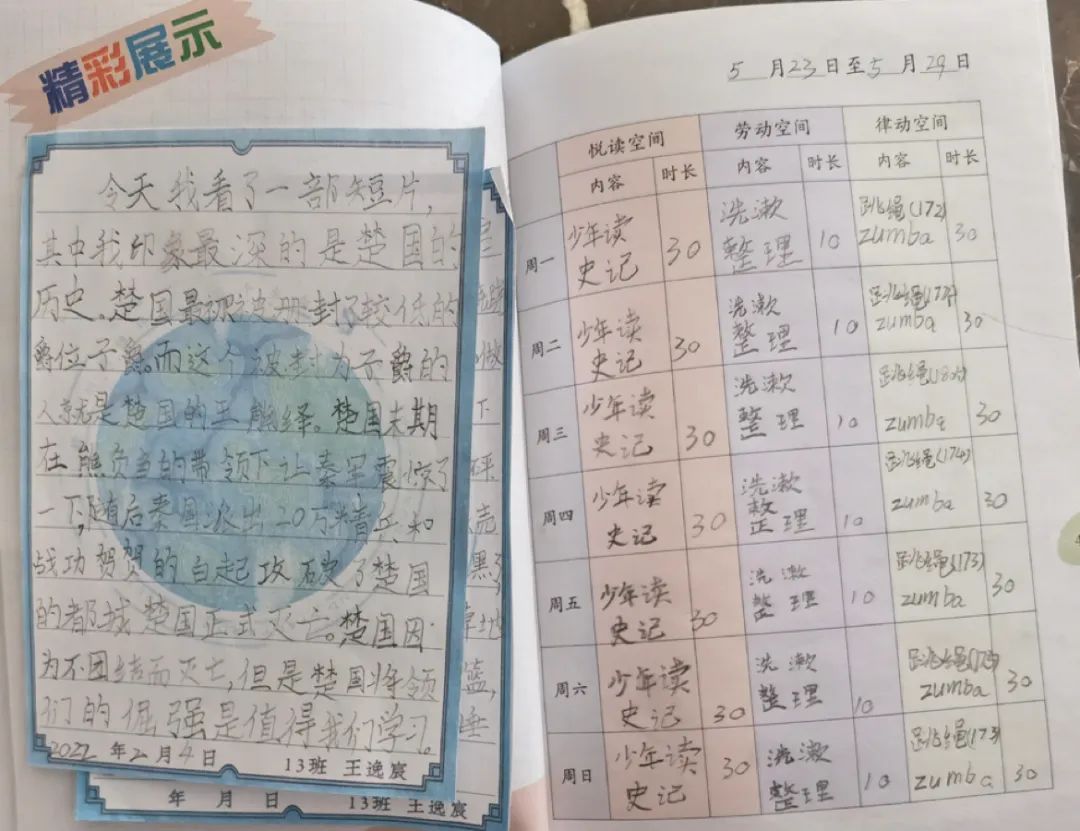 精彩展示
今天我看了一部短片,
其中我印象最深的是楚国的
历史。楚国最初被册封了较低的
爵位子爵。而这个被封为子爵的
人就是楚国的王熊绎。楚国末期
在熊负刍的带领下让秦军震惊了
一下,随后秦国派出20万精兵和
战功贺贺的白起攻破了楚国
的都城,楚国正式灭亡。楚国因
为不团结而灭亡,但是楚国将领
们的倔强是值得我们学习。
2022年2月4日
13班 王逸宸
年 月 日 13班 王逸宸
5月23日至5月29日
悦读空间 劳动空间 律动空间
内容 时长 内容 时长 内容 时长
周一 少年读史记 30 洗漱整理 10 跳绳(172) zumba 30
周二 少年读史记 30 洗漱整理 10 跳绳 zumba 30
周三 少年读史记 30 洗漱整理 10 跳绳 zumba 30
周四 少年读史记 30 洗漱整理 10 跳绳(174) zumba 30
周五 少年读史记 30 洗漱整理 10 跳绳(173) zumba 30
周六 少年读史记 30 洗漱整理 10 跳绳 zumba 30
周日 少年读史记 30 洗漱整理 10 跳绳(173) zumba 30